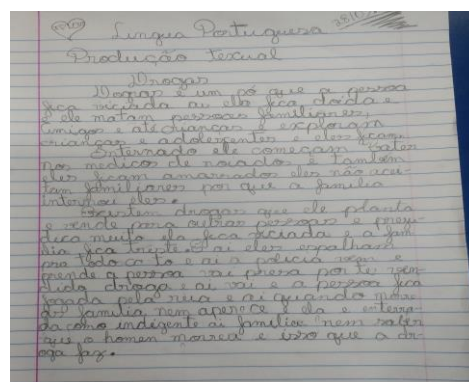 Lingua Portuguesa
Produção texual
Drogas
Drogas é um pó que a pessoa
fica viciada au ela fica doida e
e ele matam pessoas familiares
amigos e até crianças e exploram
crianças e adolecentes e eles ficam
Enternado ele começam bater
nos medicos de noiados e tambem
eles ficam amarrados eles não acei-
tam familiares por que a familia
internou eles.
Existem drogas que ele planta
e vende para outras pessoas e preju-
dica muito ela fica viciada e a fam
ilia fica triste. ai eles espalham
pra todo ca to e ai a policia vem e
prende a pessoa vai presa por te ven-
dido droga e ai vai e a pessoa fica
jogada pela rua e ai quando morre
familia nem aparece e ela e enterra-
da como indigente ai familia nem saber
que o homem morreu e isso que a dr-
oga faz.